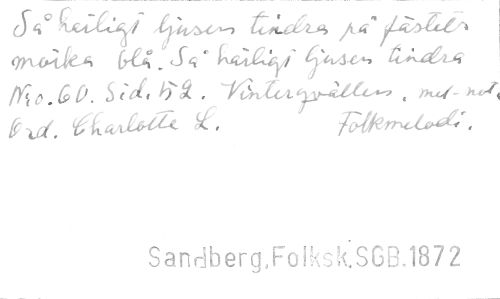 Så härligt ljusen tindra på fästets
mörka blå. Så härligt ljusen tindra
Nio. 60. Sid. 52. Vinterqvällen. med not.
Ord. Charlotte L. Folkmelodi.
Sandberg, Folksk. SGB. 1872